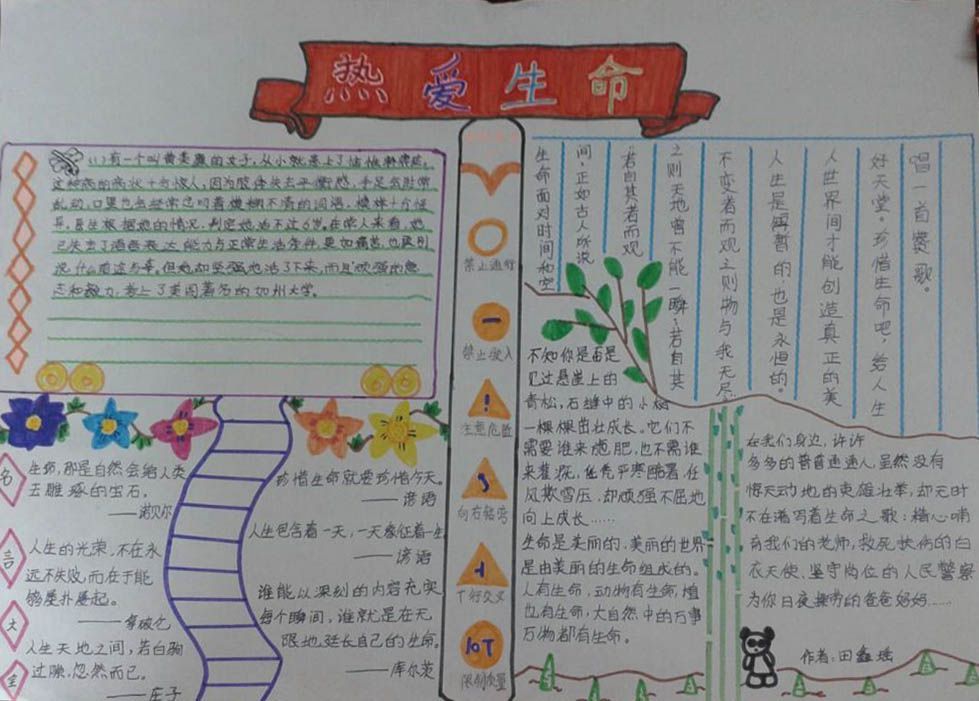 热爱生命
(1)有一个叫黄美廉的女子,从小就患上了脑性麻痹症。
这种病的病状十分惊人,因为肢体失去平衡感,手足会时常
乱动,口里也会经常念叨着模糊不清的词语,模样十分怪
异。医生根据她的情况,判定她活不过6岁。在常人来看,她
已失去了语言表达能力与正常生活条件,更加痛苦,也更别
说什么前途与幸。但她却坚强地活了下来,而且顽强的意
志和毅力,考上了美国著名的加州大学。
禁止通行
禁止驶入
注意危险
向右
T行交叉
限制质量
生命面对时间和空
间,正如古人所说
:若自其者而观
之则天地曾不能一瞬;若自其
不变者而观之则物与我无尽
人生是短暂的,也是永恒的。
人世界间才能创造真正的美
好天堂。珍惜生命吧,给人生
唱一首赞歌。
不知你是否是
见过悬崖上的
青松,石缝中的小树
一棵棵茁壮成长。它们不
需要谁来施肥,也不需谁
来灌溉,任凭严寒酷暑,任
风欺雪压,却顽强不屈地
向上成长……
生命是美丽的,美丽的世界
是由美丽的生命组成的。
人有生命,动物有生命,植
也有生命,大自然中的万事
万物都有生命。
在我们身边,许许
多多的普普通通人,虽然没有
悔天动地的英雄壮举,却无时
不在谱写着生命之歌:精心哺
育我们的老师,救死扶伤的白
衣天使、坚守岗位的人民警察
为你日夜操劳的爸爸妈妈……
作者:田鑫瑶
名
言
大
全
生命,那是自然会给人类
去雕琢的宝石。
——诺贝尔
人生的光荣,不在永
远不失败,而在于能
够屡扑屡起。
——拿破仑
人生天地之间,若白驹
过隙,忽然而已。
——庄子
珍惜生命就要珍惜今天。
——谚语
人生包含着一天,一天象征着一生
——谚语
谁能以深刻的内容充实
每个瞬间,谁就是在无
限地延长自己的生命。
——库尔茨